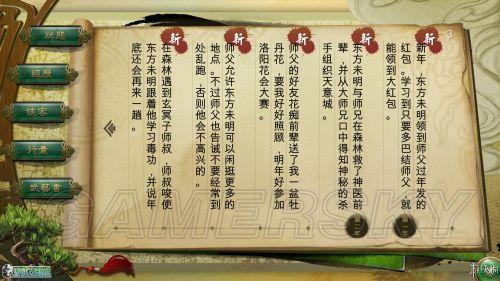 狀態
經歷
俠客
行囊
武藝書
3
新
新年，东方未明领到师父过年发的
红包。学习到只要多巴结师父，就
能领到大红包。
新
东方未明与师兄在森林救了神医前
辈，并从大师兄口中得知神秘的杀
手组织天意城。
新
师父的好友花痴前辈送了我一盆牡
丹花，要我好好照顾，明年好参加
洛阳花会大赛。
新
师父允许东方未明可以闲逛更多的
地点。不过师父也告诫不要经常到
处乱跑，否则他会不高兴的。
新
在森林遇到玄冥子师叔，师叔唆使
东方未明跟着他学习毒功，并说年
底还会再来一趟。
GAMERSKY